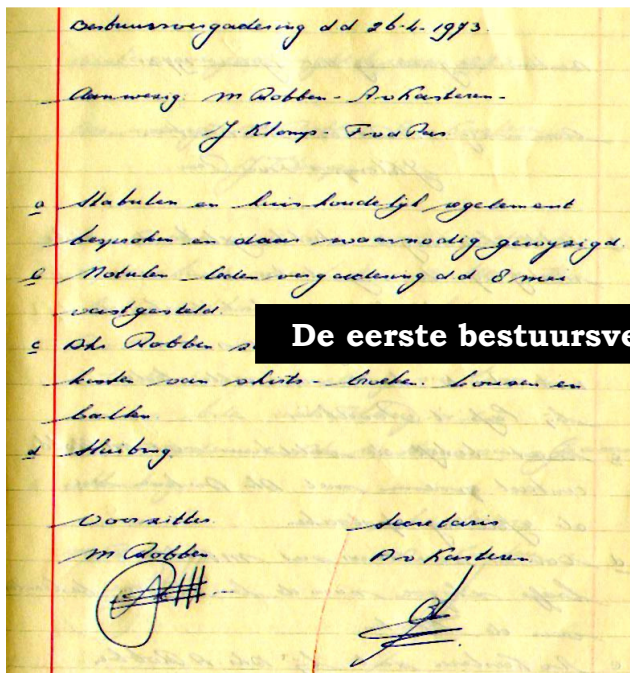 Bestuursvergadering dd 26-4-1973.
Aanwezig: M Robben - A v Kasteren -
J Klomp - F vd Pas
a Statuten en huishoudelijk regelement
besproken en daar waarnodig gewysigd.
b Notulen leden vergadering dd 8 mei
vastgesteld.
De eerste bestuursve
c Dhr Robben
kosten van shirts - broeken: kousen en
ballen
d Sluiting.
Voorzitter. Secretaris
M Robben A v Kasteren